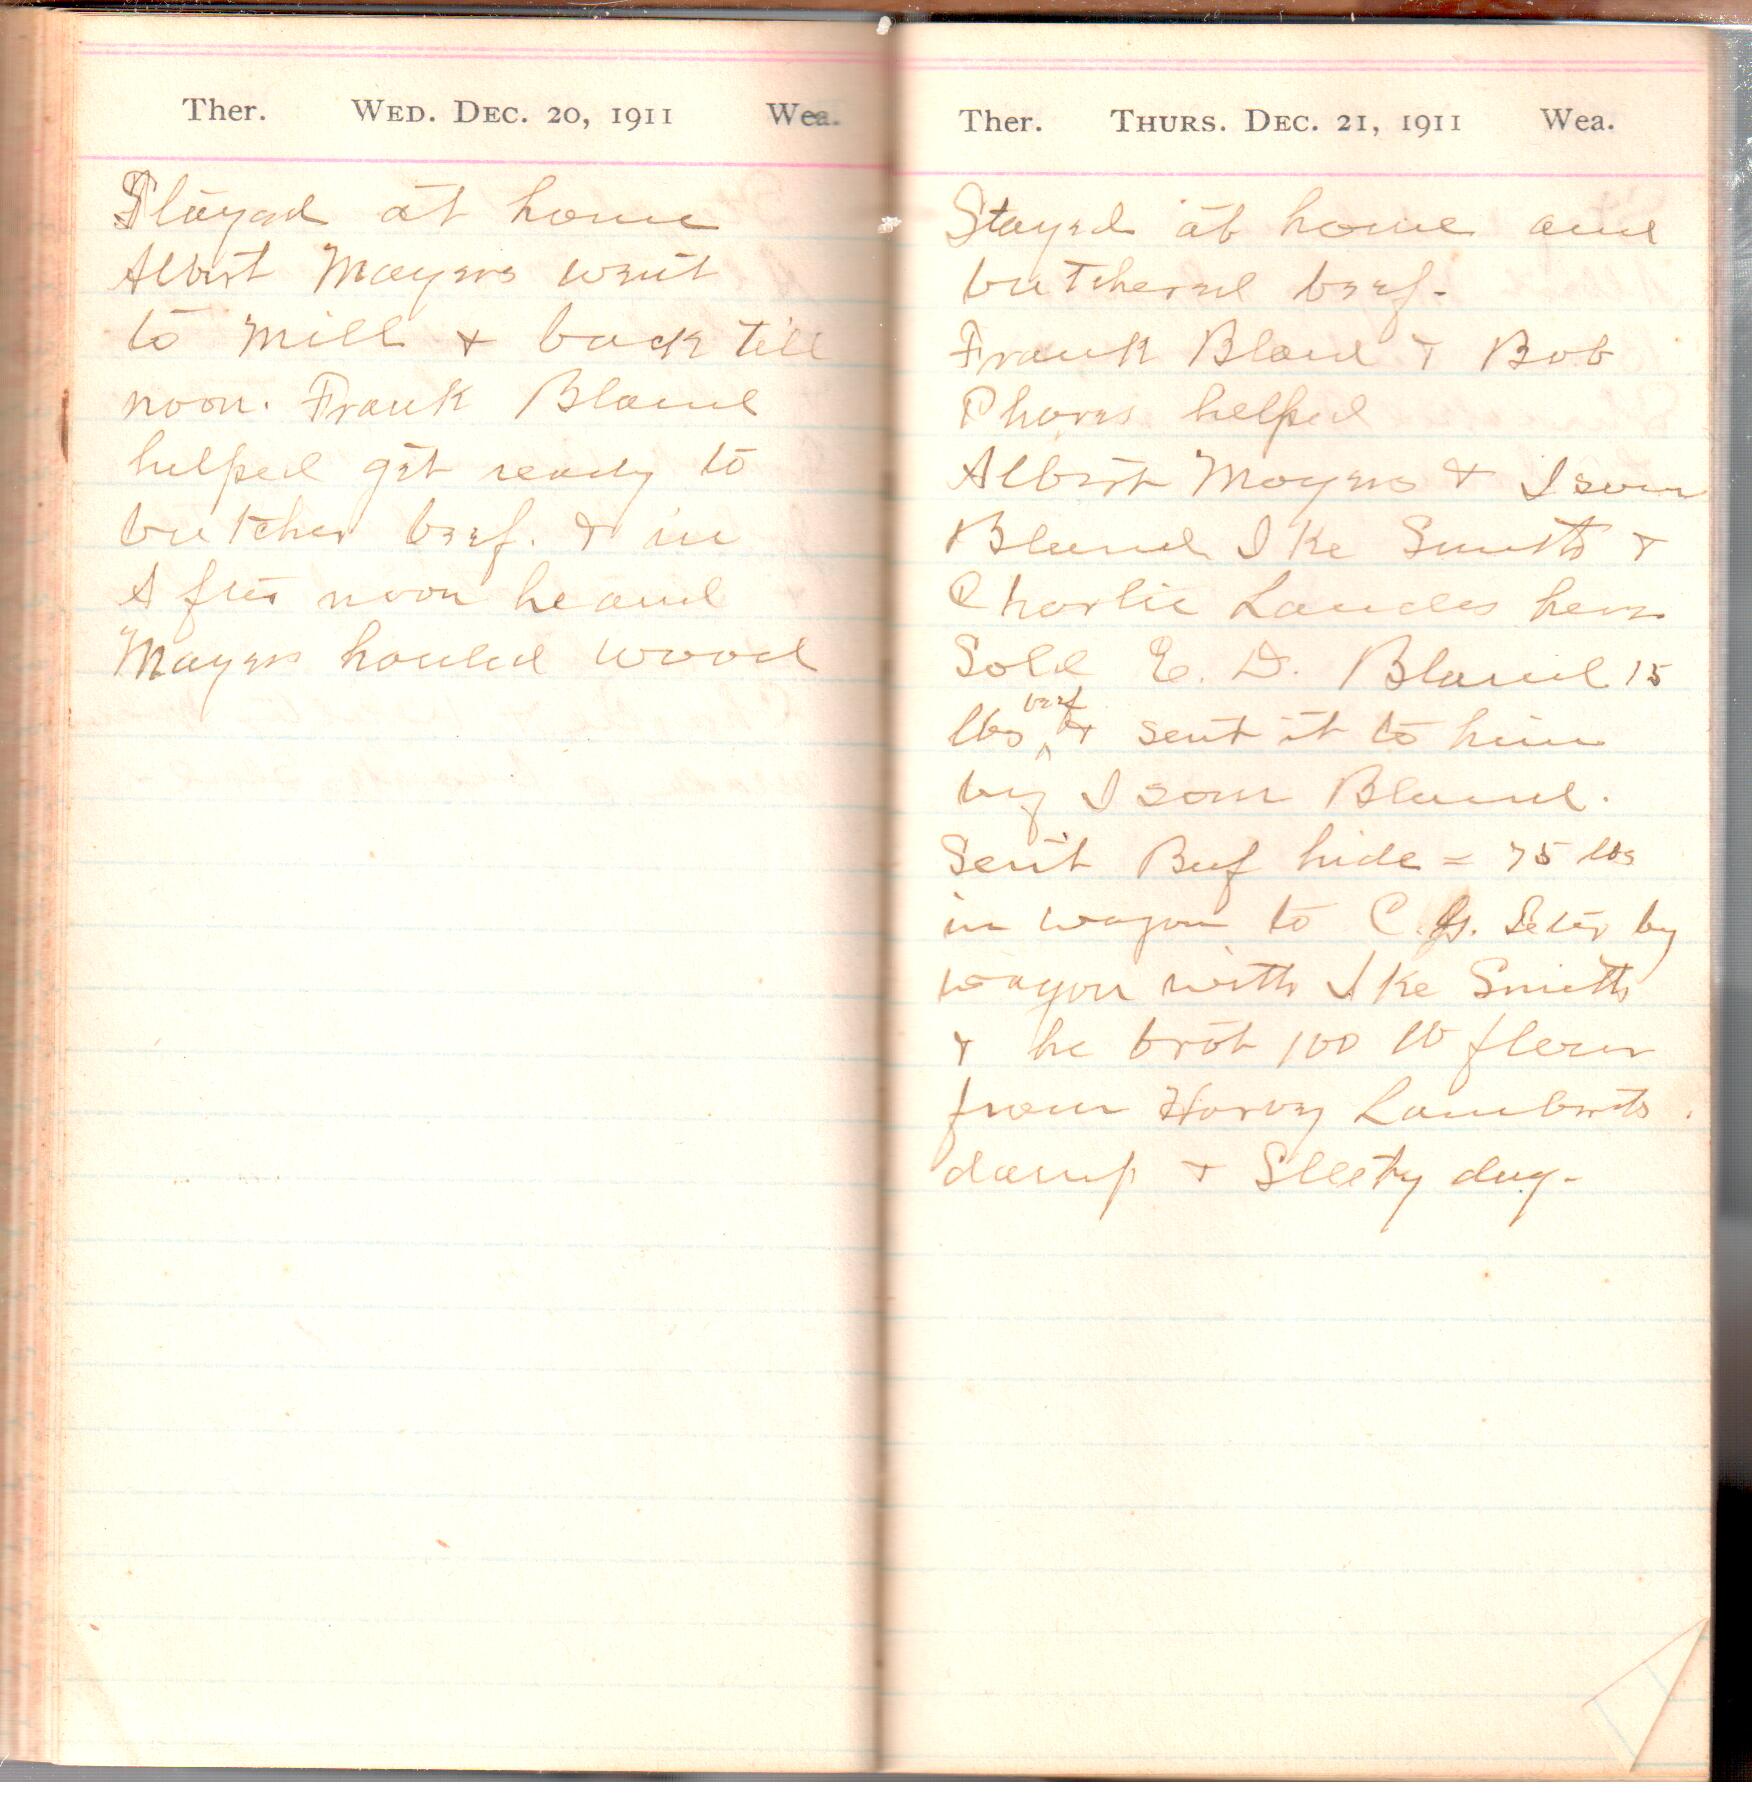 Ther. WED. DEC. 20, 1911 Wea.
Stayed at home
Albert Moyers went
to Mill & back till
noon. Frank Bland
helped get ready to
butcher beef. & in
After noon he and
Moyers hauled wood
Ther. THURS. DEC. 21, 1911 Wea.
Stayed at home and
butchered beef.
Frank Bland & Bob
Phares helped
Albert Moyers & Isom
Bland Ike Smith &
Charlie Landes here
Sold E. D. Bland 15
lbs beef & sent it to him
by Isom Bland.
Sent Beef hide = 75 lbs
in wagon to C. by
wagon with Ike Smith
& he brot 100 lb flour
from Harvey Lamberts.
damp & Sleety day-